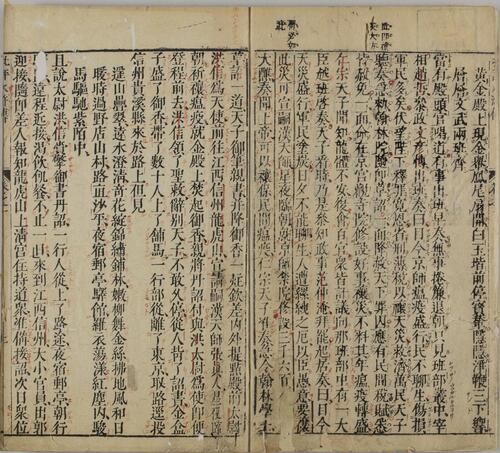 黃金殿上現金轝鳳尾扇開白玉堦前停寶輦隱隱淨鞭三下響
層層文武兩班齊
當有殿頭官喝道有事出班早奏無事捲簾退朝只見班部叢中宰
相趙哲叅政文彥博出班奏曰目今京師瘟疫盛行民不聊生傷損
軍民多矣伏望陛下釋罪寬恩省刑薄稅以禳天災救濟萬民天子
聽奏急勅翰林院隨即草詔一面降赦天下罪囚應有民間稅賦悉
皆赦免一面命在京宮觀寺院修設好事禳災不料其年瘟疫轉盛
仁宗天子聞知龍體不安復會百官衆皆計議向那班部中有一大
臣越班啓奏天子看時乃是叅知政事范仲淹拜罷起居奏曰目今
天災盛行軍民塗炭日夕不能聊生人遭縲絏之厄以臣愚意要禳
此災可宣嗣漢天師星夜臨朝就京師禁院修設三千六百
大醮奏聞上帝可以禳保民間瘟疫仁宗天子准奏急令翰林學士
草詔一道天子御筆親書并降御香一炷欽差內外提點殿前太尉
洪信爲天使前往江西信州龍虎山宣請嗣漢天師張真人星夜臨
朝祈禳瘟疫就金殿上焚起御香親將丹詔付與洪太尉爲使即便
登程前去洪信領了聖勅辭別天子不敢久停從人背了詔書金盒
子盛了御香帶了數十人上了鋪馬一行部從離了東京取路逕投
信州貴溪縣來於路上但見
遙山疊翠遠水澄清奇花綻錦繡鋪林嫩柳舞金絲拂地風和日
暖時過野店山村路直沙平夜宿郵亭驛館羅衣蕩漾紅塵內駿
馬驅馳紫陌中
且說太尉洪信賫擎御書丹詔一行人從上了路途夜宿郵亭朝行
遠程近接渴飲飢飡不止一日來到江西信州大小官員出郭
迎接隨即差人報知龍虎山上清宮住持道衆准備接詔次日衆位